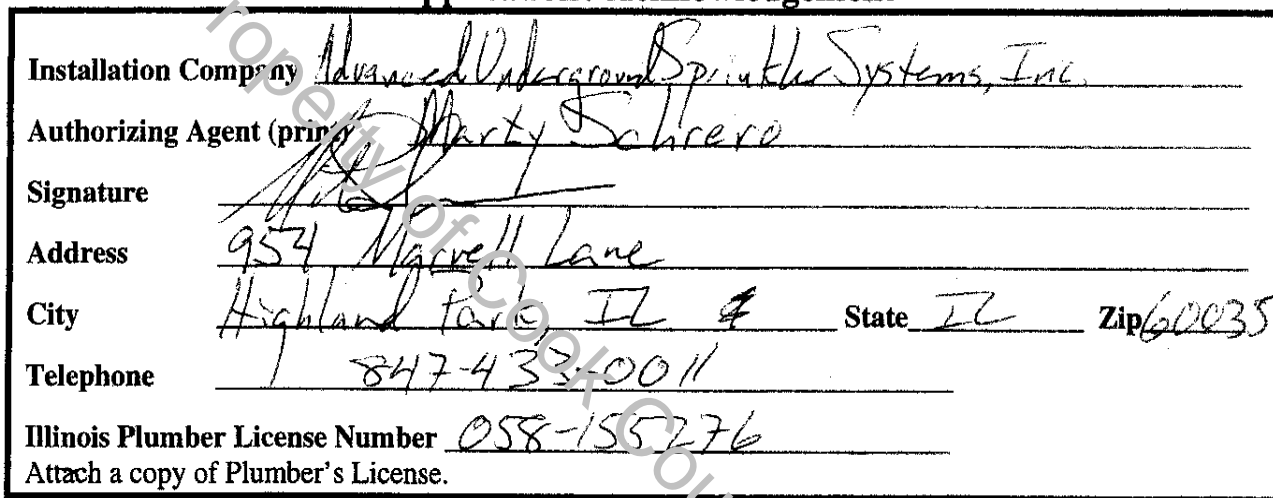 Installation Company Advanced Underground Sprinkler Systems, Inc.
Authorizing Agent (print) Marty Schrero
Signature
Address 954 Marvell Lane
City Highland Park, IL State IL Zip 60035
Telephone 847-433-0011
Illinois Plumber License Number 058-155276
Attach a copy of Plumber's License.
roperty of Cook Cou